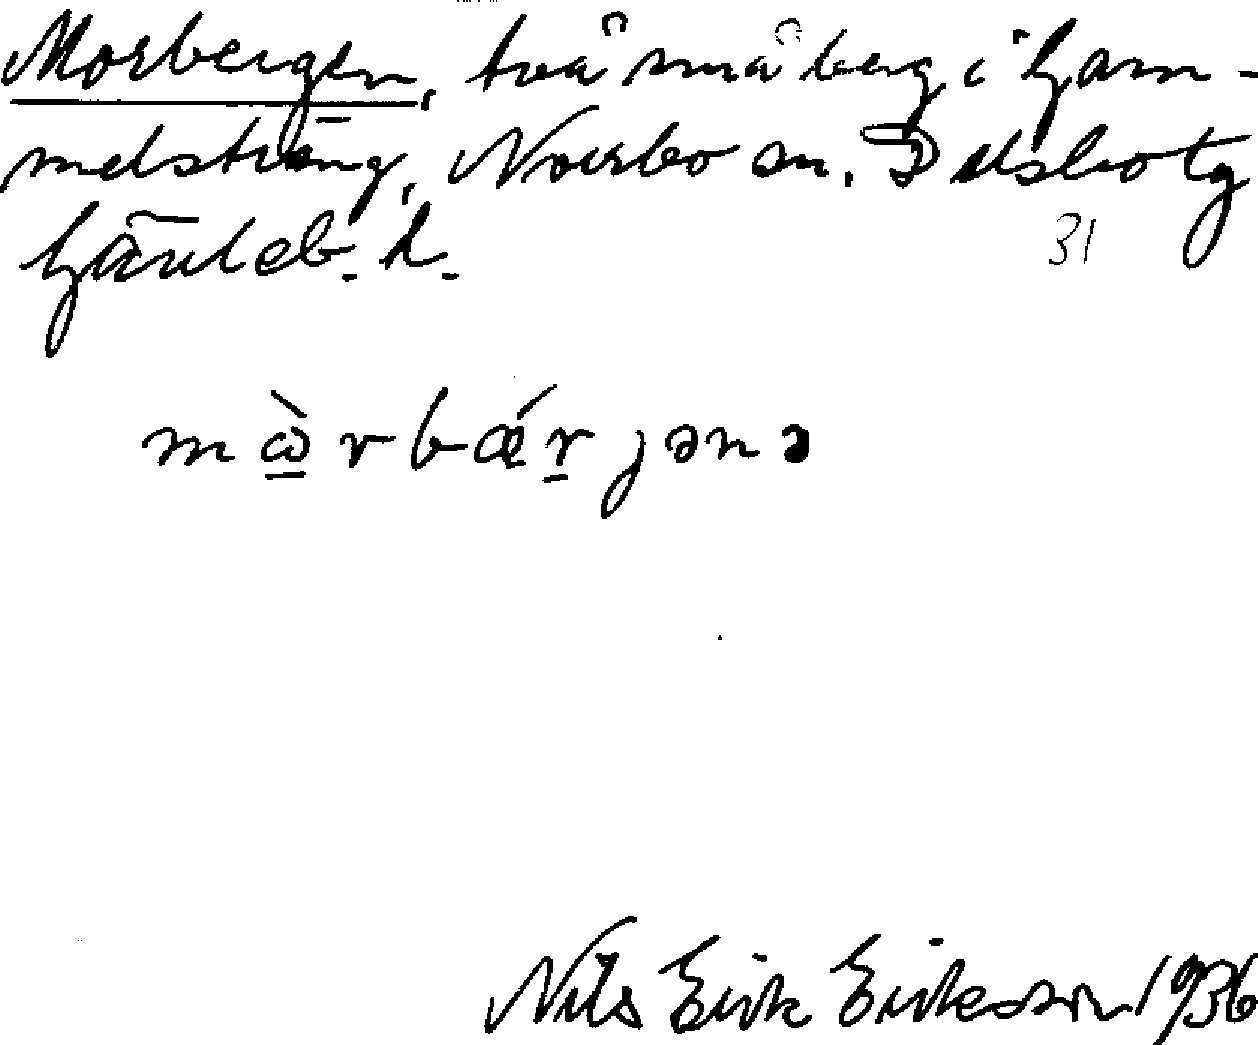 Morbergen, två små berg i Gam-
melsträng, Norrbo sn. Delsbo tg
Gävleb. l.
31
mɷ̀rbǽrjənə
Nils Erik Eriksson 1936